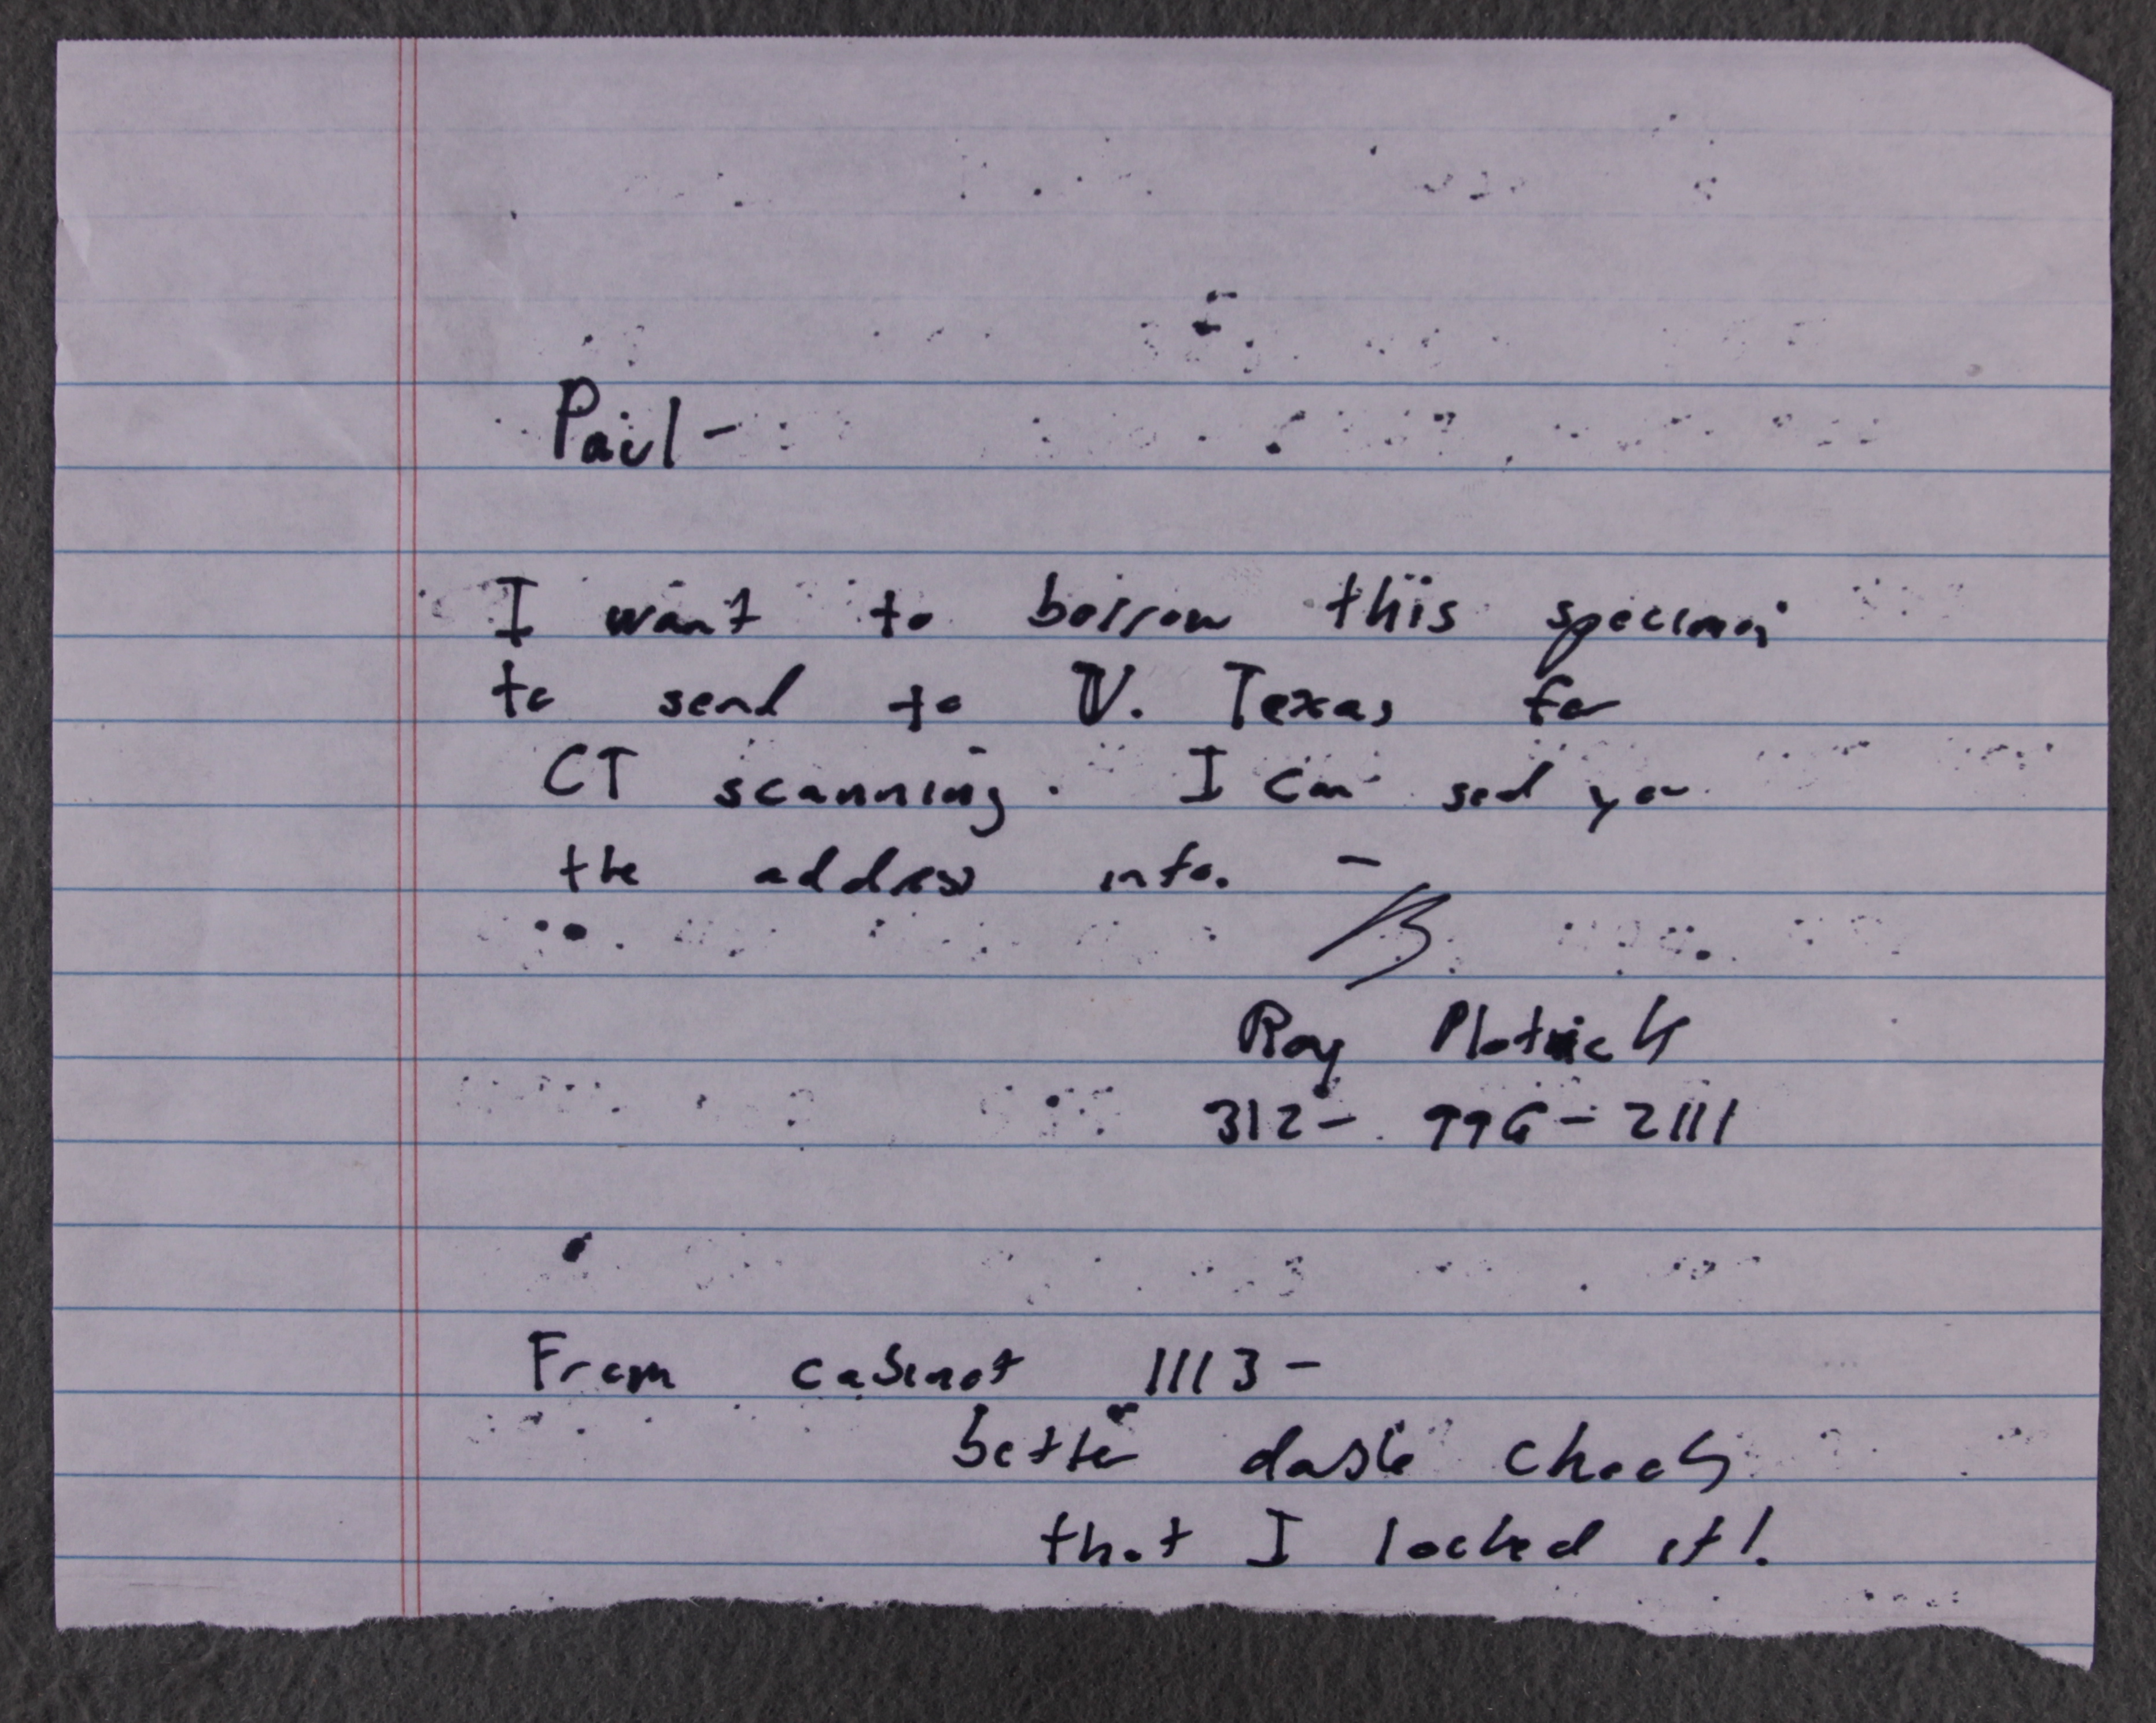 Paul -
I want to borrow this specimen
to send to U. Texas for
CT scanning. I can send you
the address info. -
Roy Plotnick
312- 996-2111
From cabinet 1113-
better double check
that I locked it!